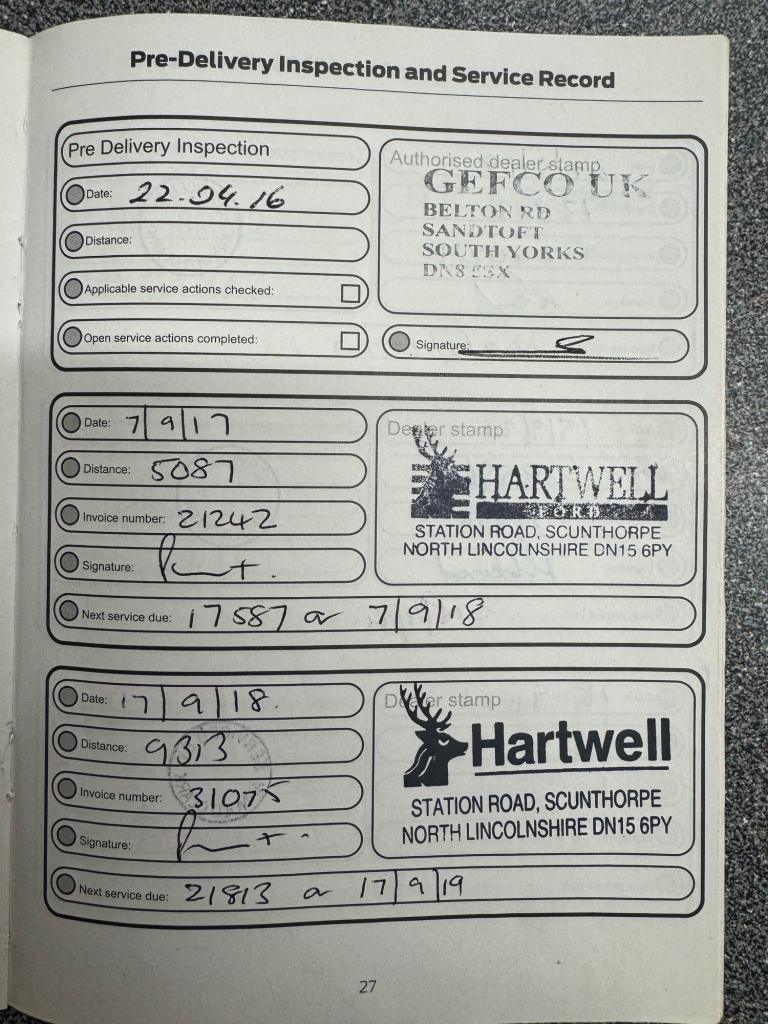 Pre-Delivery Inspection and Service Record
Pre Delivery Inspection
Date: 22.04.16
Distance:
Applicable service actions checked:
Open service actions completed:
Authorised dealer stamp
GEFCO UK
BELTON RD
SANDTOFT
SOUTH YORKS
DN8
Signature:
Date: 7/9/17
Distance: 5087
Invoice number: 21242
Signature:
Next service due: 17587 or 7/9/18
Dealer stamp
HARTWELL
FORD
STATION ROAD, SCUNTHORPE
NORTH LINCOLNSHIRE DN15 6PY
Date: 17/9/18.
Distance: 9313
Invoice number: 31075
Signature:
Next service due: 21813 or 17/9/19
Dealer stamp
Hartwell
STATION ROAD, SCUNTHORPE
NORTH LINCOLNSHIRE DN15 6PY
27